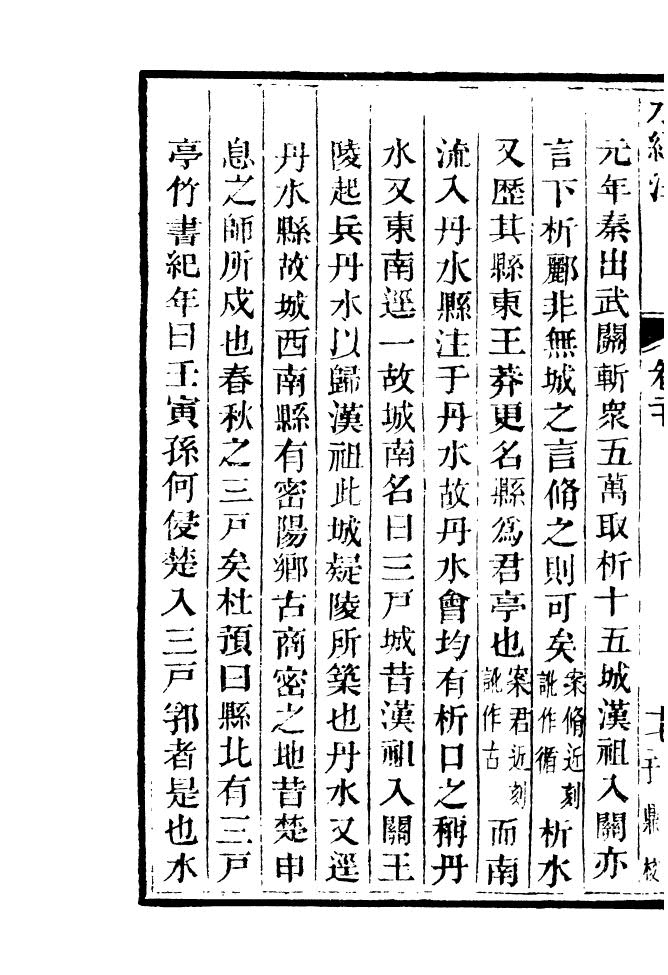 水經注
卷二十
于鼎校
元年秦出武關斬衆五萬取析十五城漢祖入關亦
言下析酈非無城之言脩之則可矣案脩近刻訛作循析水
又歷其縣東王莽更名縣爲君亭也案君近刻訛作古而南
流入丹水縣注于丹水故丹水會均有析口之稱丹
水又東南逕一故城南名曰三戸城昔漢祖入關王
陵起兵丹水以歸漢祖此城疑陵所築也丹水又逕
丹水縣故城西南縣有密陽鄉古商密之地昔楚申
息之師所戍也春秋之三戸矣杜預曰縣北有三戸
亭竹書紀年曰壬寅孫何侵楚入三戸郛者是也水